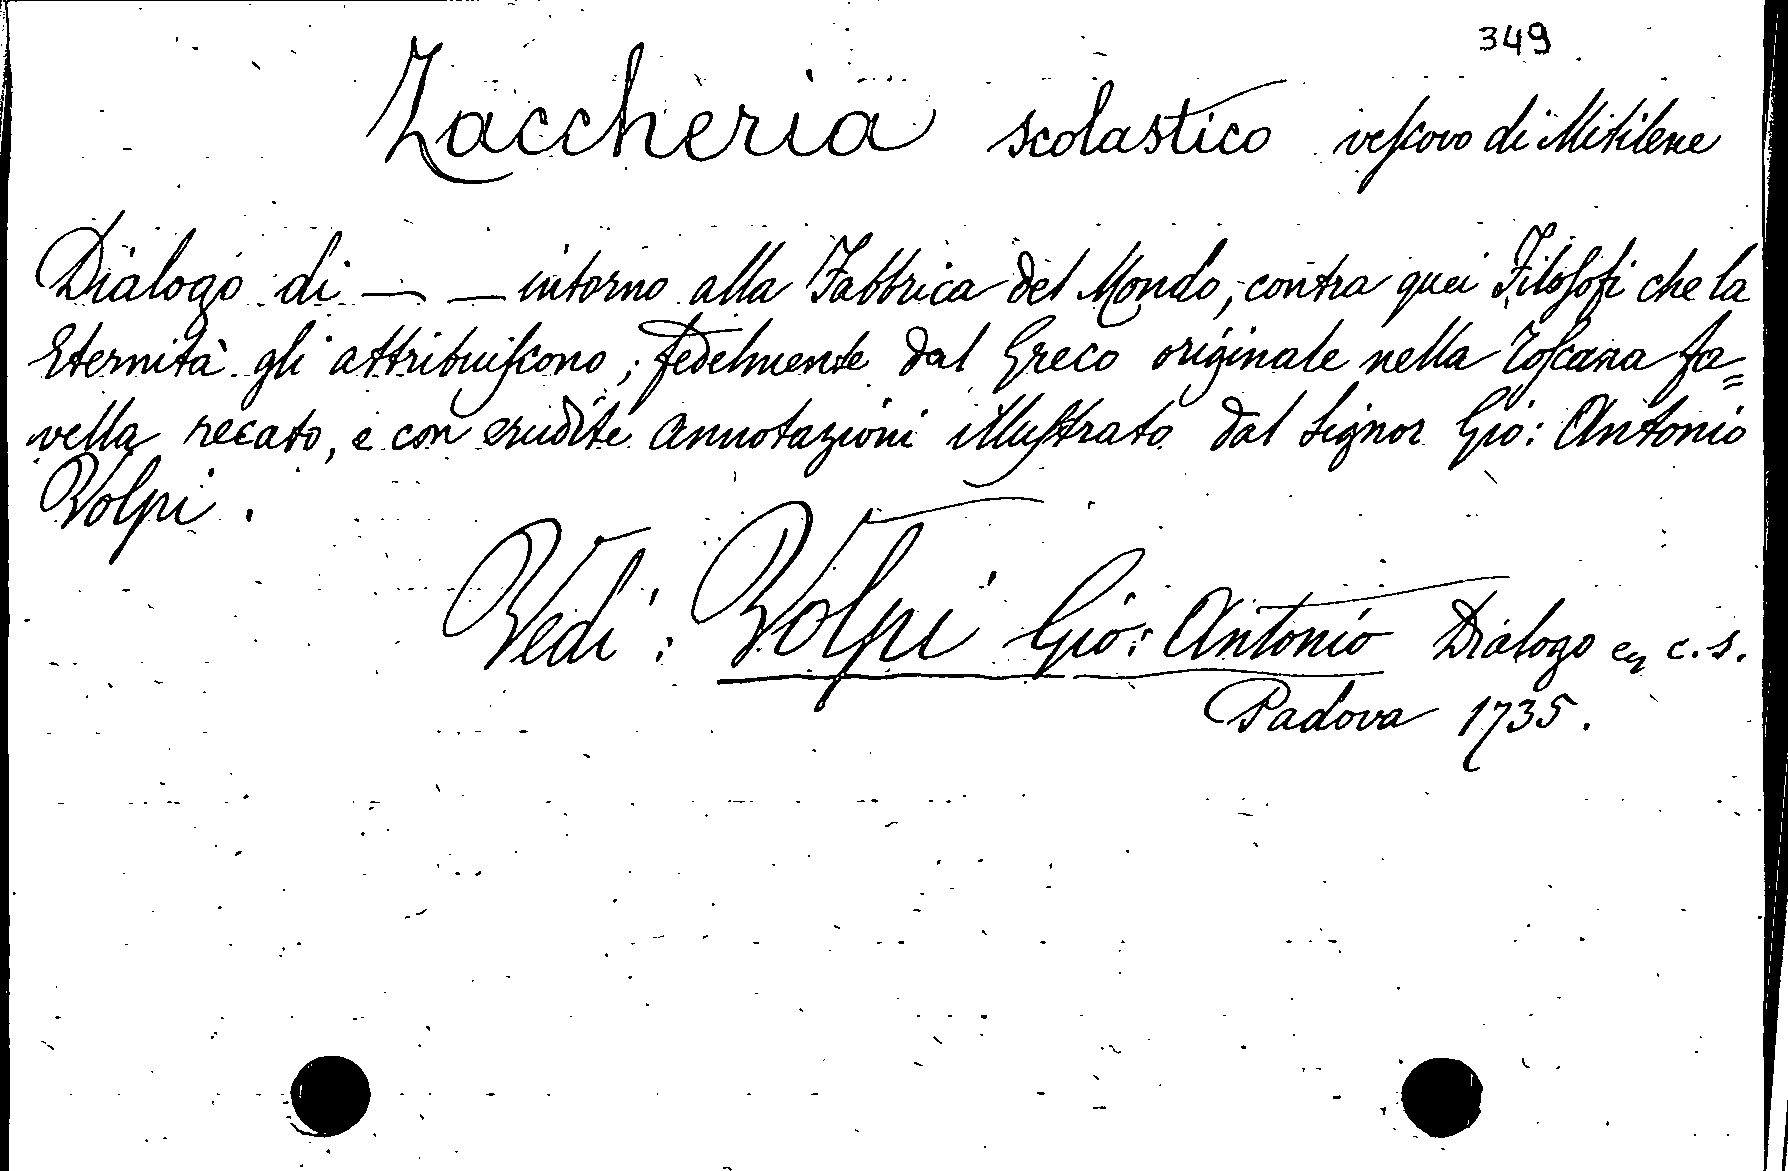 349
Zaccheria scolastico veſcovo di Mitilene
Dialogo di — — intorno alla Fabbrica del Mondo, contra quei Filoſofi che la
Eternità gli attribuiſcono; fedelmente dal Greco originale nella Toſcana fa=
vella recato, e con erudite annotazioni illuſtrato dal Signor Gio: Antonio
Volpi.
Vedi: Volpi Gio: Antonio Dialogo c. s.
Padova 1735.